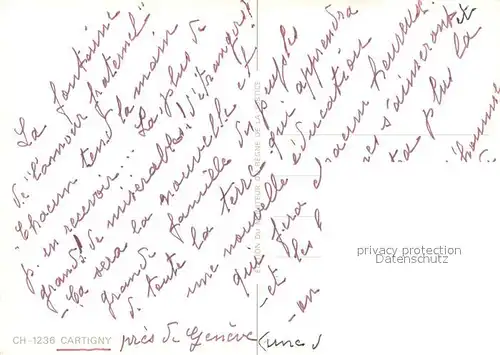 La fontaine
de "l'amour fraternel"
Chacun tend la main
p. en recevoir... La plus de
grands! de misérables! d'étrangers!
- Ça sera la nouvelle et
grande famille du peuple
de toute la terre qui apprendra
une nouvelle éducation
qui fera chacun heureux
- et les
- on
et
s'aimeront
plus la
l'homme
de
EDITION DU REGNE DE LA JUSTICE
privacy protection
Datenschutz
CH-1236 CARTIGNY près de Genève (une